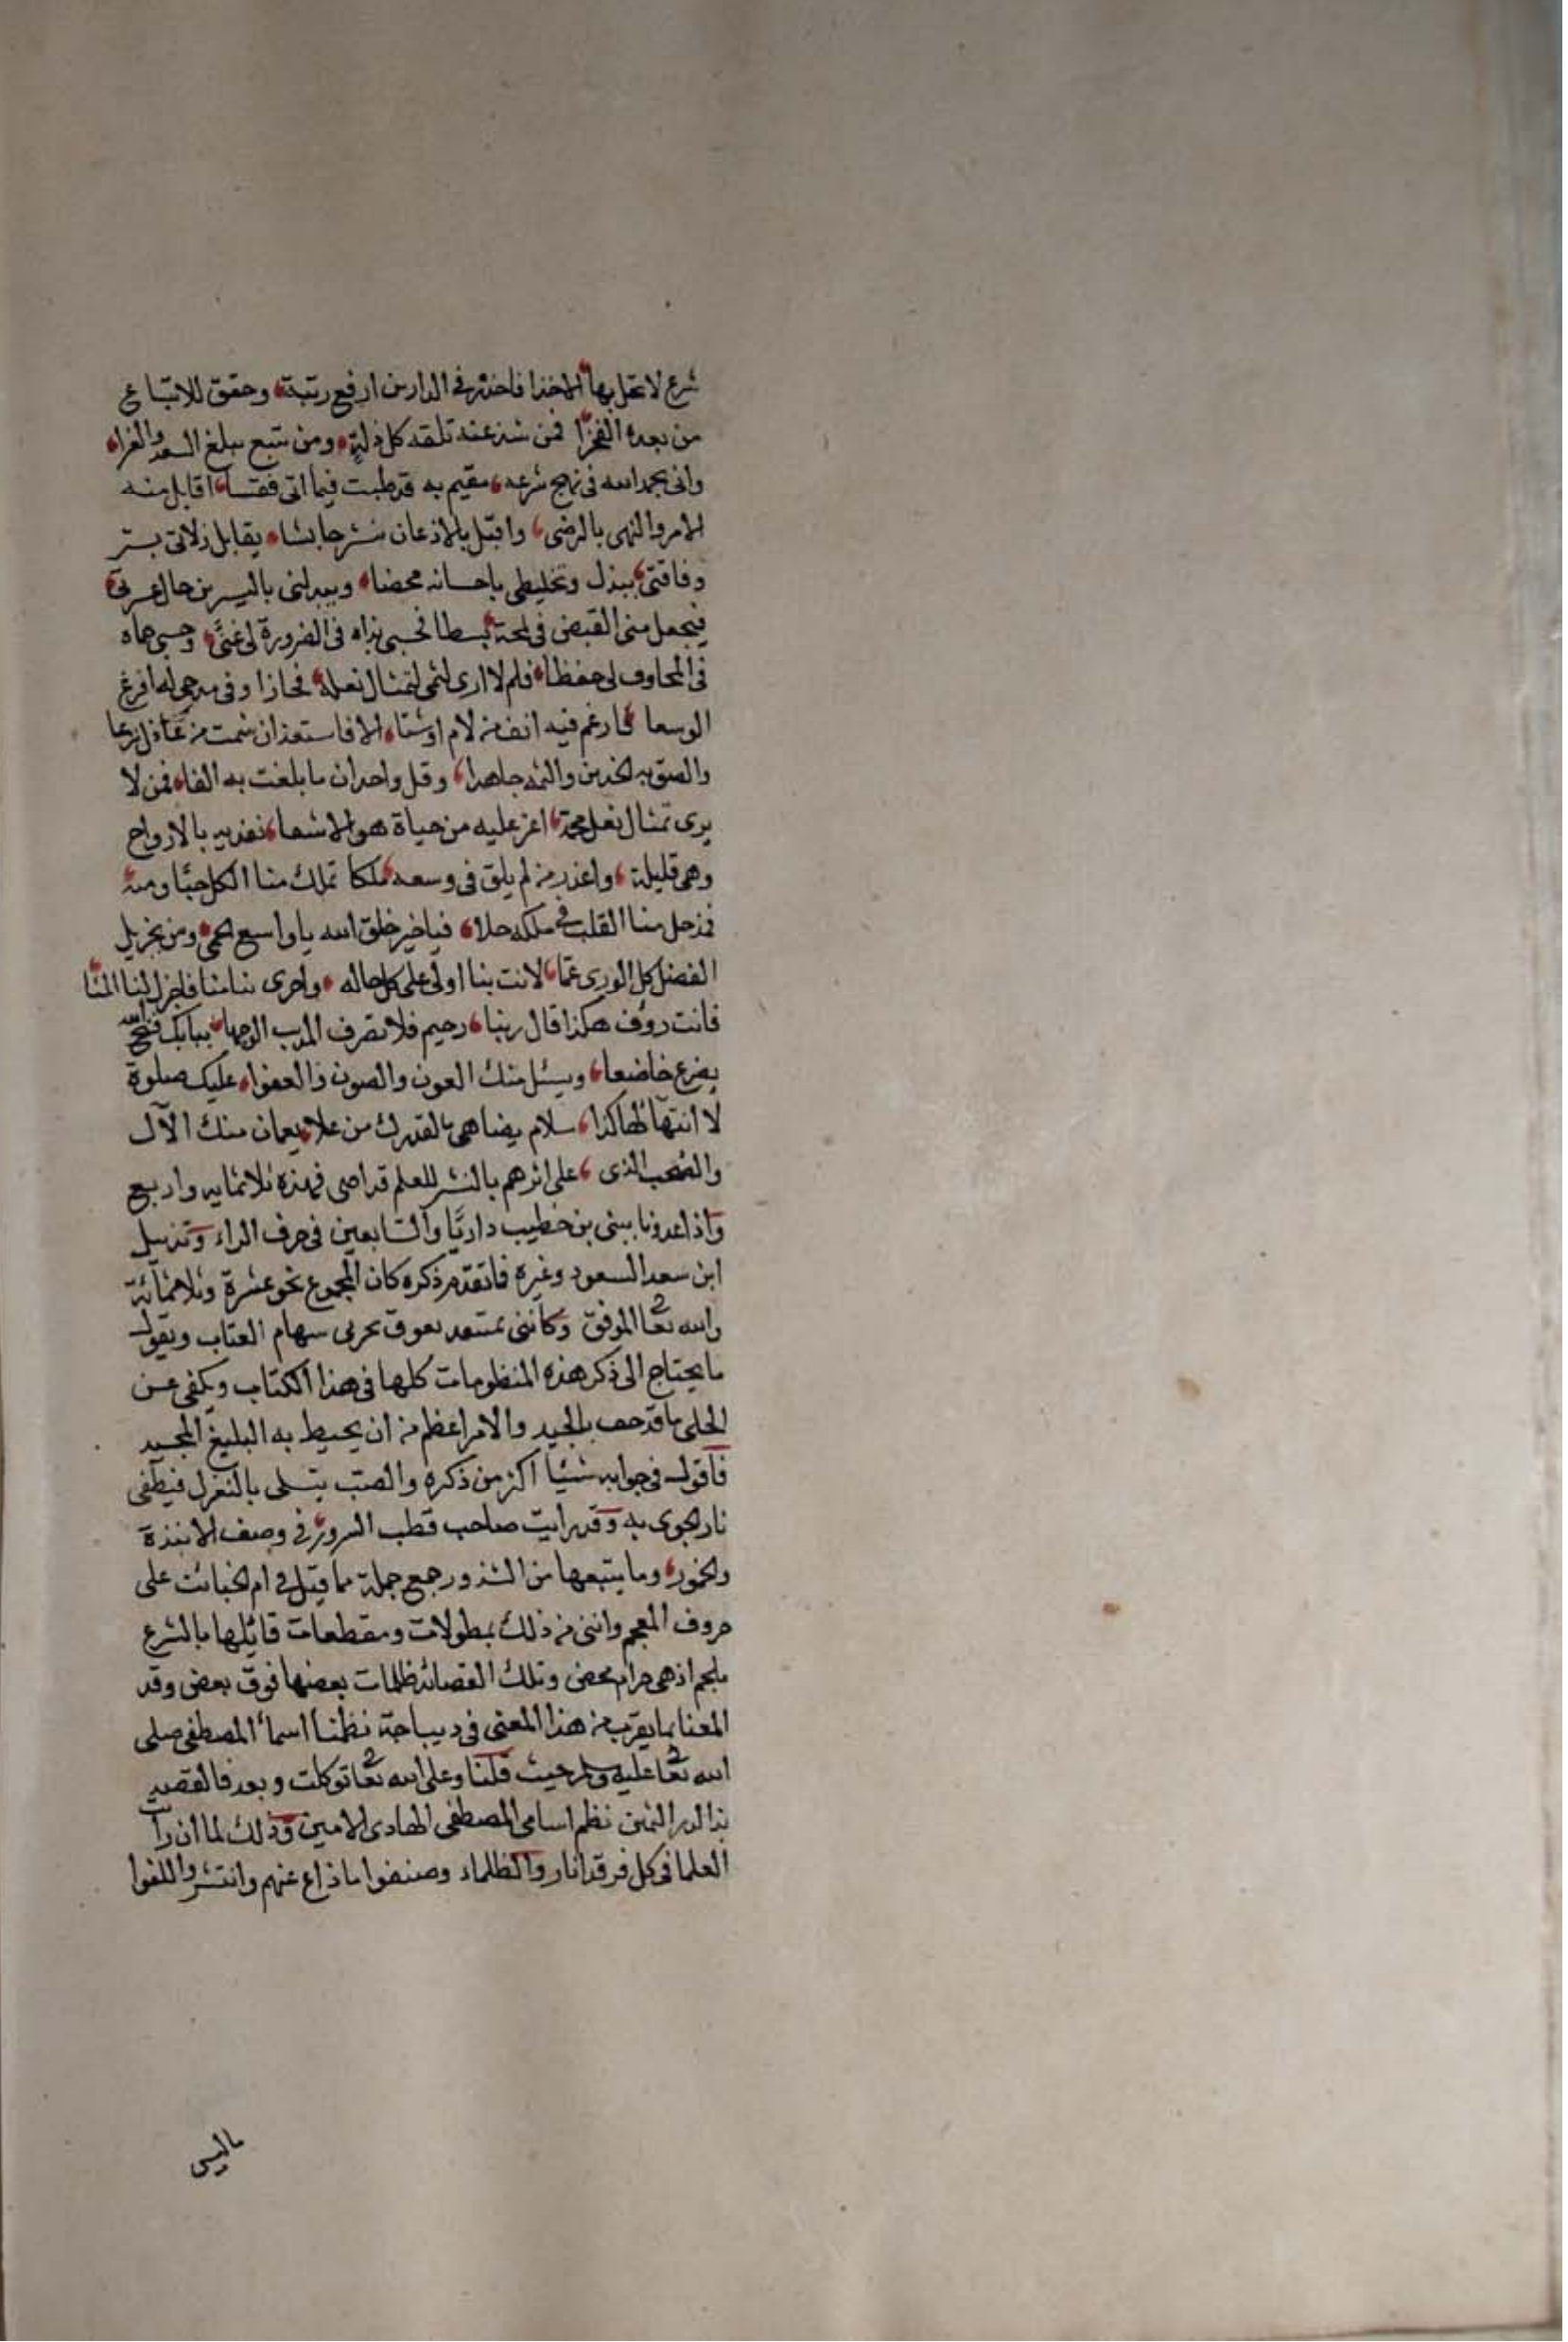 شرع لا تحل بها الاخذا فاخذه في الدارين ارفع رتبة وحقق للاتباع
من بعده الفخرا فمن شذ عنه تلقه كل ذلة ومن يتبع يبلغ السعد والغرا
واني بحمد الله في نهج شرعه مقيم به قد طبت فيما اتى اقابل منه
الامر والنهى بالرضى واقبل بالاذعان يقابل زلاتى بستر
وفاقتى ببذل وتخليطى باحسانه محضا ويبدلنى باليسر من حال عسرتى
فيجعل منى القبض فى لمحة بسطا فحسبى نداه فى الضرورة لى غنى وحسبى حماه
فى المخاوف لى حفظا فلم لا ارى لثمى لتمثال نعله وفى مدحى له افرغ
الوسعا فارغم فيه انف من لام اوشتا الا فاستعذ ان شمت من عاذل نزعا
والصق به الخدين والثمه جاهدا وقل واحد ان ما بلغت به الفا فمن لا
يرى تمثال نعل محمد اعز عليه من حياة هو الاشعا نفديه بالارواح
وهى قليلة واعذر من لم يلق فى وسعه ملكا تملك منا الكل حبا ومنة
فمذ حل منا القلب فى ملكه حلا فيا خير خلق الله يا واسع الحمى ومن بجزيل
الفضل كل الورى عما لانت بنا اولى على كل حاله واحرى بنا منا فاجزل لنا المنا
فانت رؤف هكذا قال ربنا رحيم فلا تصرف ببابك فتح الله
يضرع خاضعا ويسئل منك العون والصون والعفوا عليك صلوة
لا انتها لها كذا سلام يضاهى بالقدرك من علا يعمان منك الآل
والصحب الذى على اثرهم بالنشر للعلم قد اضى فهذه ثلاثمايه واربع
واذا عددنا بيتى بن خطيب داريا والتابعين فى حرف الراء وتذييل
ابن سعد السعود وغيره فاتقدم ذكره كان المجموع نحو عشرة وثلاثمائة
والله تعا الموفق وكأننى بمتعد بعوق نحرى سهام العتاب ويقول
ما يحتاج الى ذكر هذه المنظومات كلها فى هذا الكتاب ويكفى عن
الحلى ما قد حف بالجيد والامر اعظم من ان يحيط به البليغ المجيد
فاقول فى جوابه شيئا اكثر من ذكره والصب يتسلى بالتغزل فيطفى
نار الجوى به وقد رايت صاحب قطب السرور فى وصف الانبذة
والخمور وما يتبعها من الشذور جمع جملة مما قيل فى ام الخبائث على
حروف المعجم واتى من ذلك بمطولات ومقطعات قائلها بالشرع
ملجم اذ هى حرام محض وتلك القصائد ظلمات بعضها فوق بعض وقد
المعنا بما يقرب من هذا المعنى فى ديباجة نظمنا اسما المصطفى صلى
الله تعا عليه وسلم حيث قلنا وعلى الله تعا توكلت وبعد فالقصد
بذا الدر الثمين نظم اسامى المصطفى الهادى الامين وذلك لما ان رأيت
العلما فى كل فن قد اناروا الظلماء وصنفوا ما ذاع عنهم وانتشر والفوا
ماليس